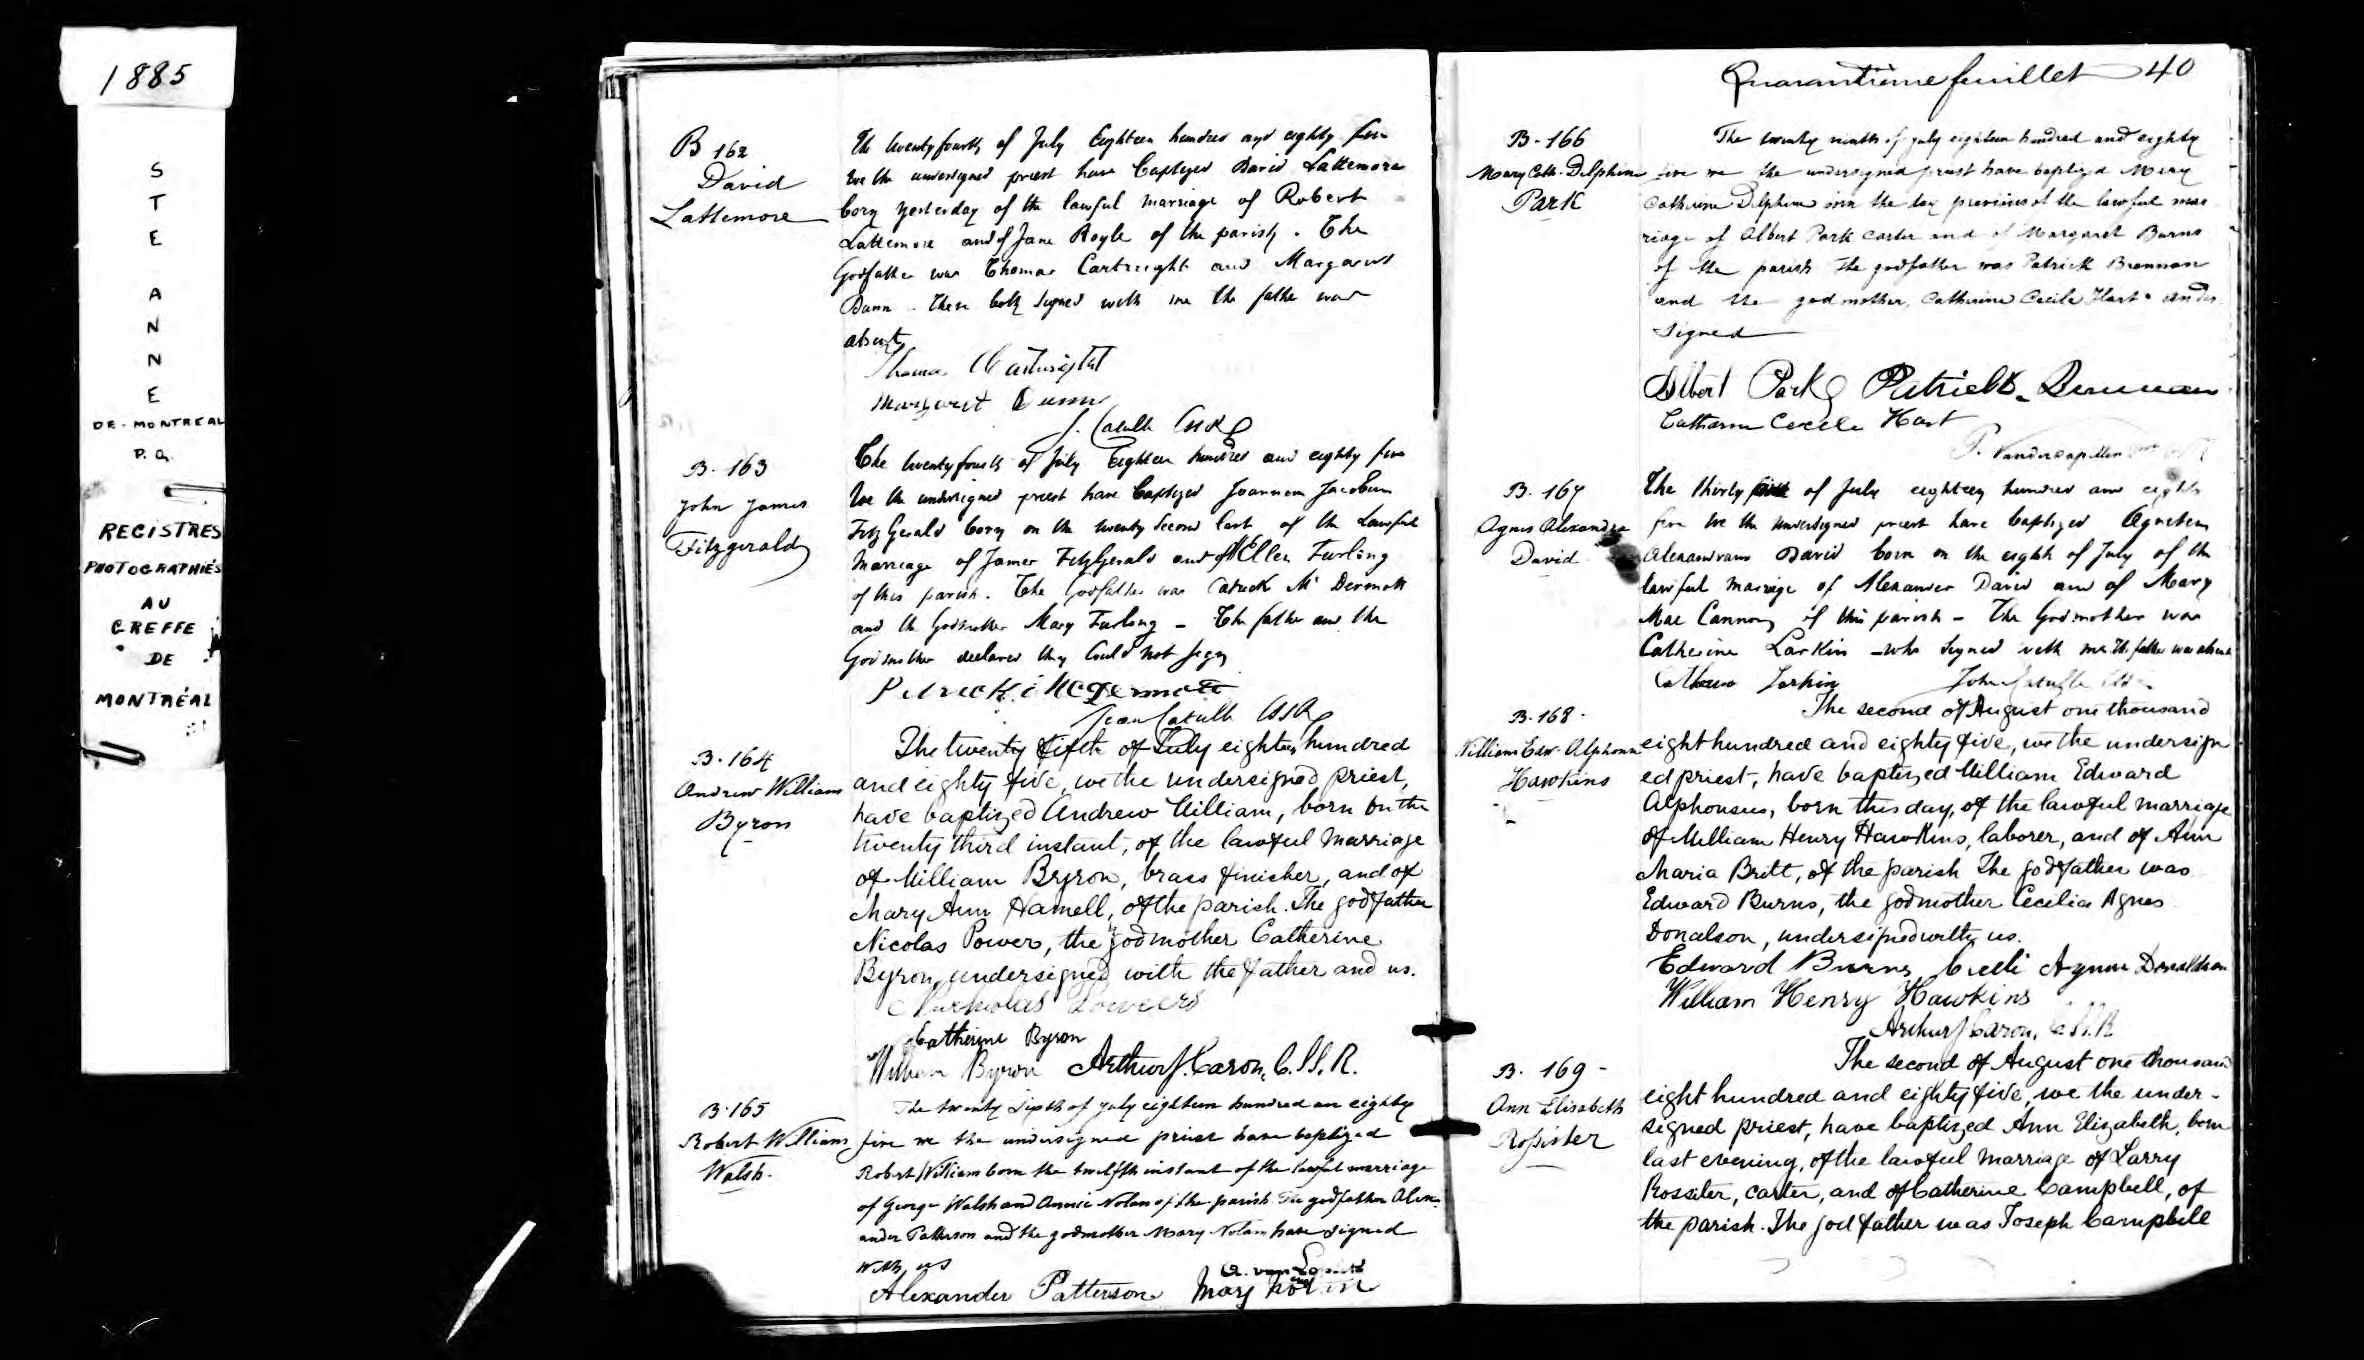 1885
STE ANNE
DE-MONTREAL
P.Q.
REGISTRES
PHOTOGRAPHIÉS
AU
GREFFE
DE
MONTRÉAL
B 162
David
Lattemore
The twenty fourth of July Eighteen hundred and eighty five
we the undersigned priest have baptized David Lattemore
born yesterday of the lawful marriage of Robert
Lattemore and of Jane Royle of the parish. The
Godfather was Thomas Cartwright and Margaret
Dunn. These both signed with me the father was
absent
Thomas Cartwright
Margaret Dunn
J. Catulle CssR
B. 163
John James
Fitzgerald
The twenty fourth of July Eighteen hundred and eighty five
We the undersigned priest have baptized Joannem Jacobum
FitzGerald born on the twenty second last of the Lawful
Marriage of James FitzGerald and of Ellen Furlong
of this parish. The Godfather was Patrick Mc Dermott
and the Godmother Mary Furlong - The father and the
Godmother declared they could not sign
Patrick McDermott
Jean Catulle CSSR
B. 164
Andrew William
Byron
The twenty fifth of July eighteen hundred
and eighty five, we the undersigned priest,
have baptized Andrew William, born on the
twenty third instant, of the lawful marriage
of William Byron, brass finisher, and of
Mary Ann Hamell, of the parish. The godfather
Nicolas Power, the godmother Catherine
Byron, undersigned with the father and us.
Nicholas Powers
Catherine Byron
William Byron Arthur J. Caron, C.SS.R.
B. 165
Robert William
Walsh.
The twenty sixth of july eighteen hundred an eighty
five we the undersigned priest have baptized
Robert William born the twelfth instant of the lawful marriage
of George Walsh and Annie Nolan of the parish The godfather Alex-
ander Patterson and the godmother Mary Nolan have signed
with us
Alexander Patterson Mary Nolan
Quarantième feuillet 40
B-166
Mary Cath. Delphine
Park
The twenty ninth of july eighteen hundred and eighty
five we the undersigned priest have baptized Mary
Catherine Delphine born the day previous of the lawful mar
riage of Albert Park carter and of Margaret Burns
of the parish The godfather was Patrick Brennan
and the godmother, Catherine Cecile Hart under
signed
Albert Park Patrick Brennan
Catharine Cecele Hart
P. Vandercapellen
B. 167
Agnes Alexandra
David
The thirty of July eighteen hundred and eighty
five We the undersigned priest have baptized Agnetem
Alexandram David born on the eighth of July of the
lawful marriage of Alexander David and of Mary
Mac Cannon of this parish - The Godmother was
Catherine Larkin - who signed with me the father was absent
Larkin John Catulle CSSR
B. 168.
William Edw. Alphonse
Hawkins
The second of August one thousand
eight hundred and eighty five, we the undersign
ed priest, have baptized William Edward
Alphonsus, born this day, of the lawful marriage
of William Henry Hawkins, laborer, and of Ann
Maria Britt, of the parish The godfather was
Edward Burns, the godmother Cecilia Agnes
Donalson, undersigned with us.
Edward Burns Donaldson
William Henry Hawkins
Arthur J Caron, C.SS.R
B. 169-
Ann Elisabeth
Rossister
The second of August one thousand
eight hundred and eighty five, we the under-
signed priest, have baptized Ann Elizabeth, born
last evening, of the lawful marriage of Larry
Rossiter, carter, and of Catherine Campbell, of
the parish. The god father was Joseph Campbell